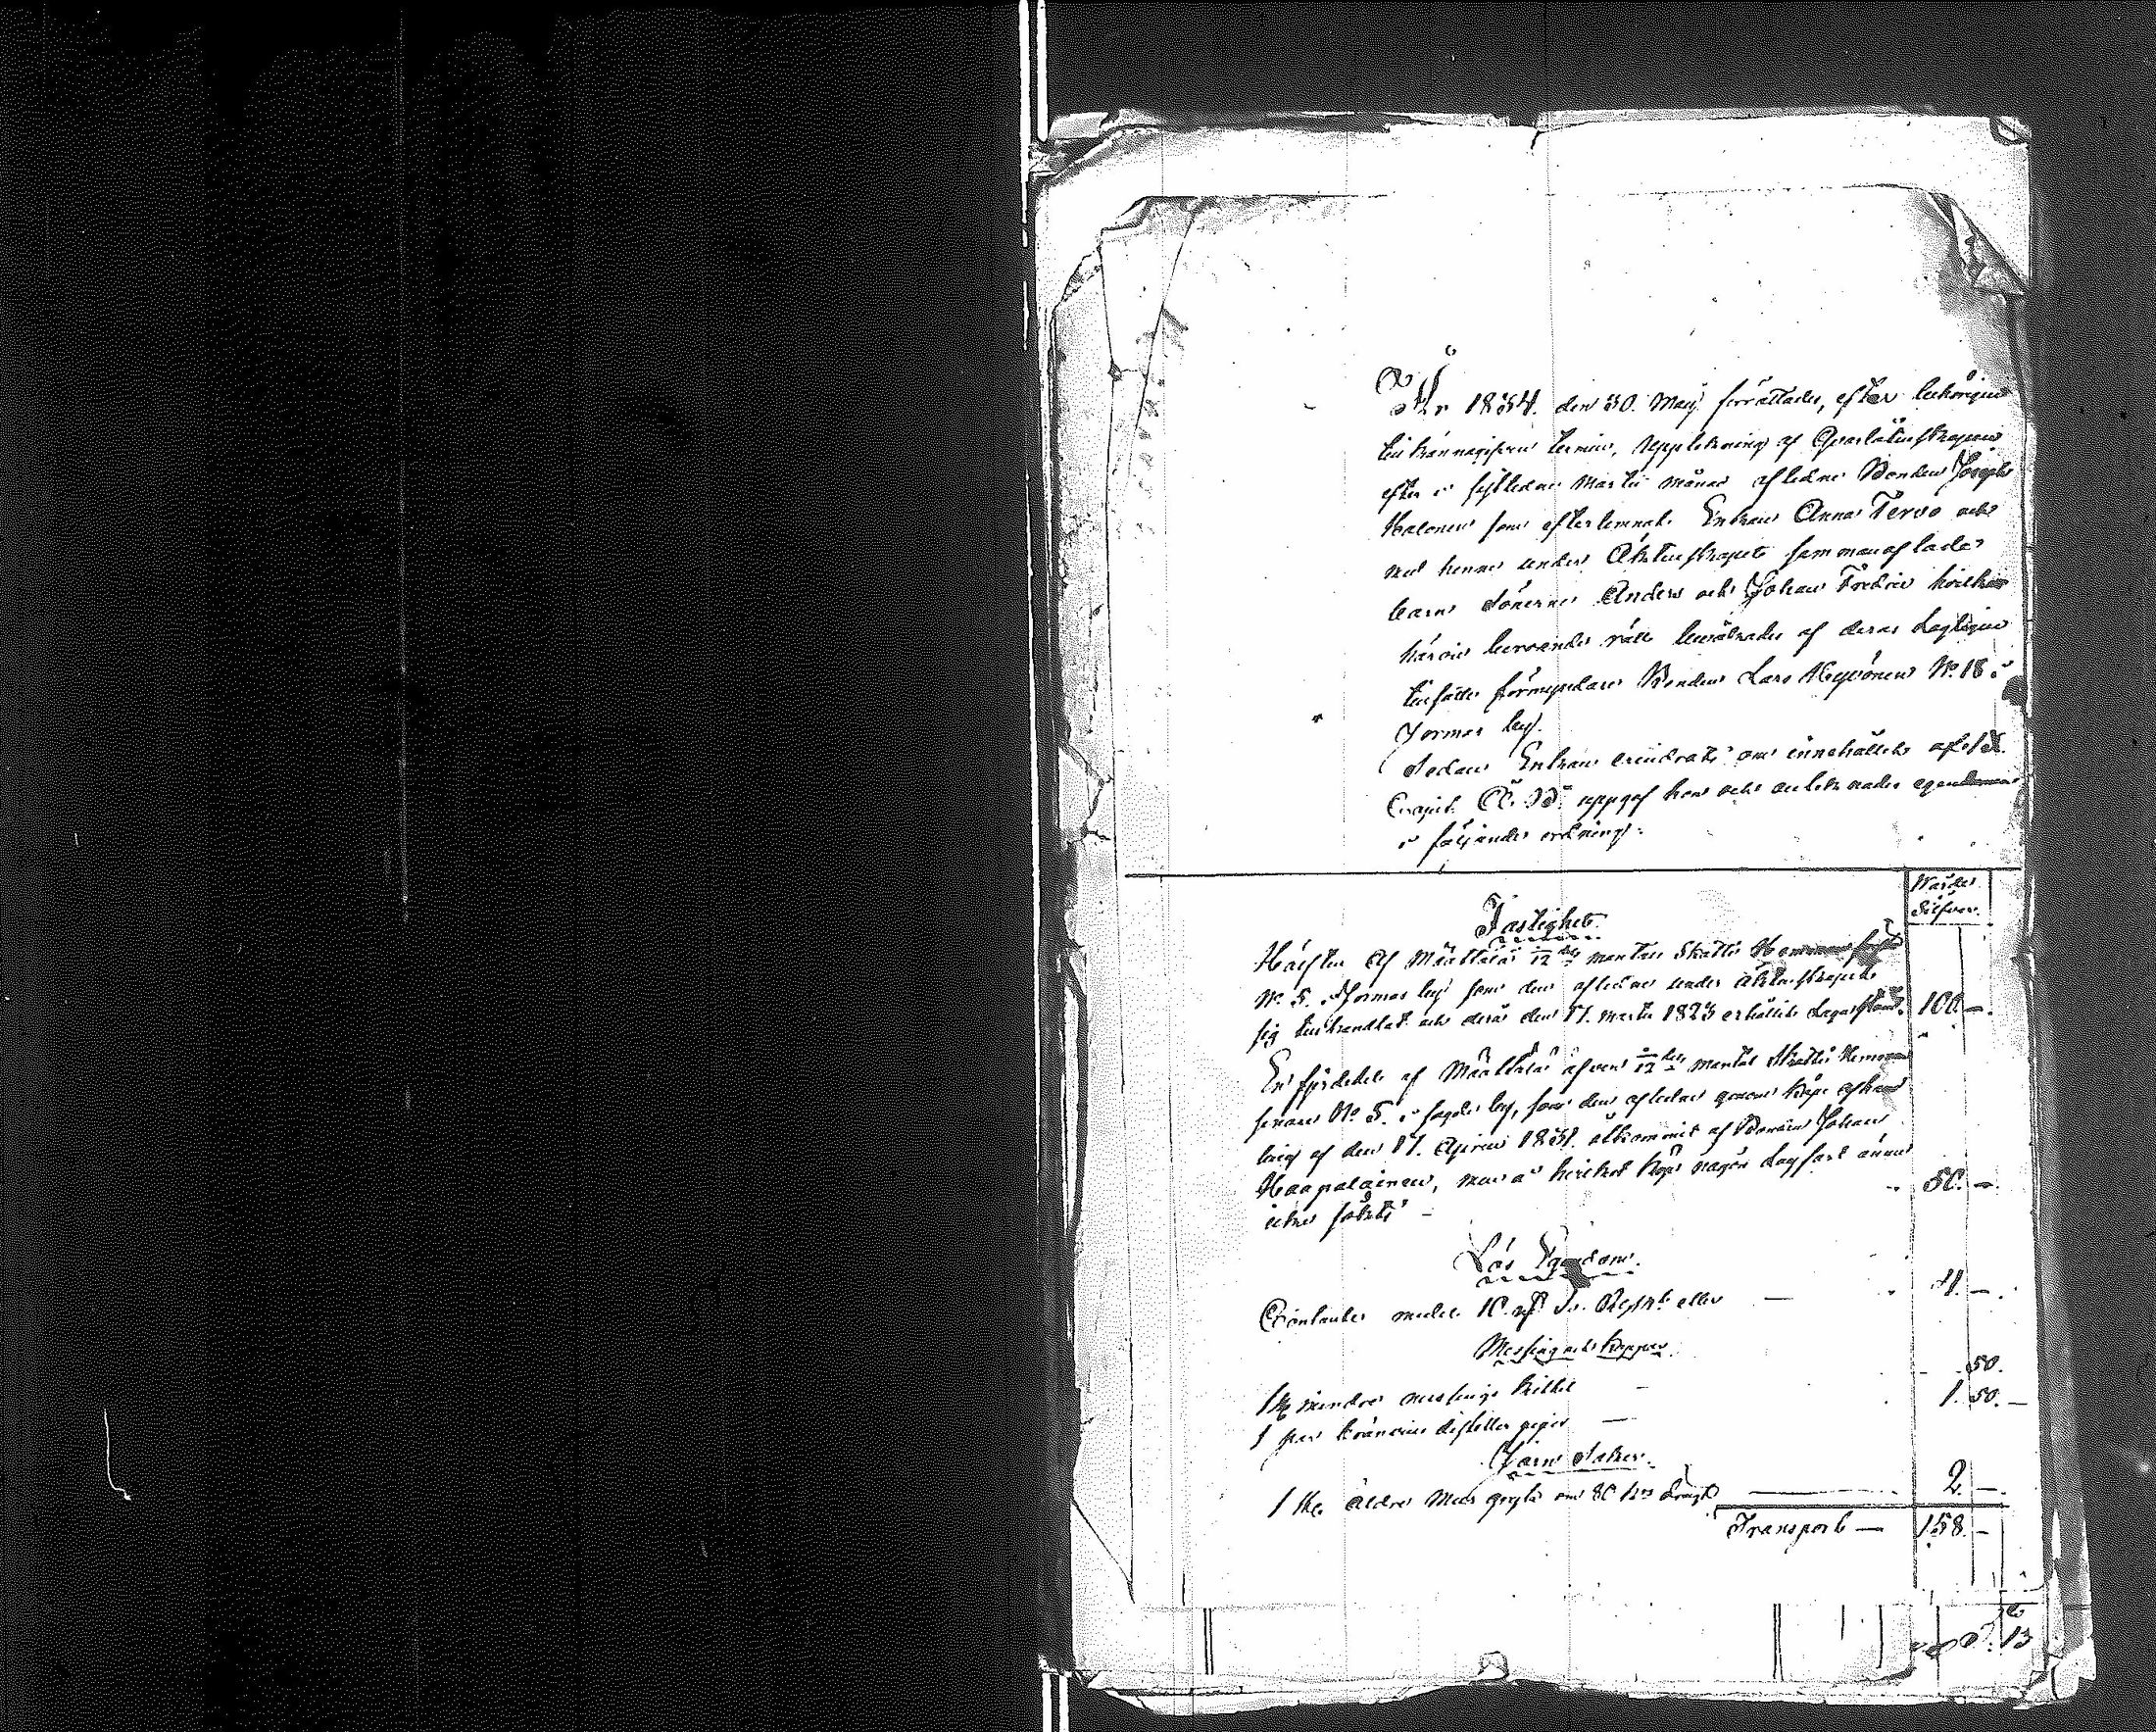 År 1834. den 30. Maij förrättades, efter behörigen
tillkännagifven termin, uppteckning af Qvarlåtenskapen
efter i sistledne Martii månad aflidne Bonden Joseph
Halonen som efterlemnat Enkan Anna Tervo och
med henne under Äktenskapet sammanaflade
barn Sönerne Anders och Johan Fredric hvilkas
härvid beroende rätt bevakades af deras Lagligen
tillsatte förmyndare Bonden Lars Heyvönen N:o 18 i
Jormas by.
Sedan Enkan erindrats om innehållet af
Capit. Ä. B. uppgaf hon och antecknades egendomen
i följande ordning:
Värde
Silfver.
Fastighet.
Hälften af Määttälä 12 mantals Skatte Hemman
N:o 5. Jormas by som den aflidne under äktenskapet
sig tillhandlat och derå den 17. Martii 1823 erhållit Lagafasta. 100. –
En fjerdedel af Määttälä äfven 12 mantal Skatte Hemman
N:o 5. i sagde by, som den aflidne genom köpe afhand
ling af den 17. Aprill 1831. åtkommit af Bonden Johan
Haapalainen, men å hvilket köp någon Lagfart ännu
icke sökts – 50. –
Lös Egendom.
Contanter medel 10. eller – 4. –
Messing och Koppar.
1 st. mindre messings kittel – 50.
1 par distiller pipor – 1. 50. –
Jern Saker.
1 st. äldre gryta om 80 2. –
Transport — 158. –
13